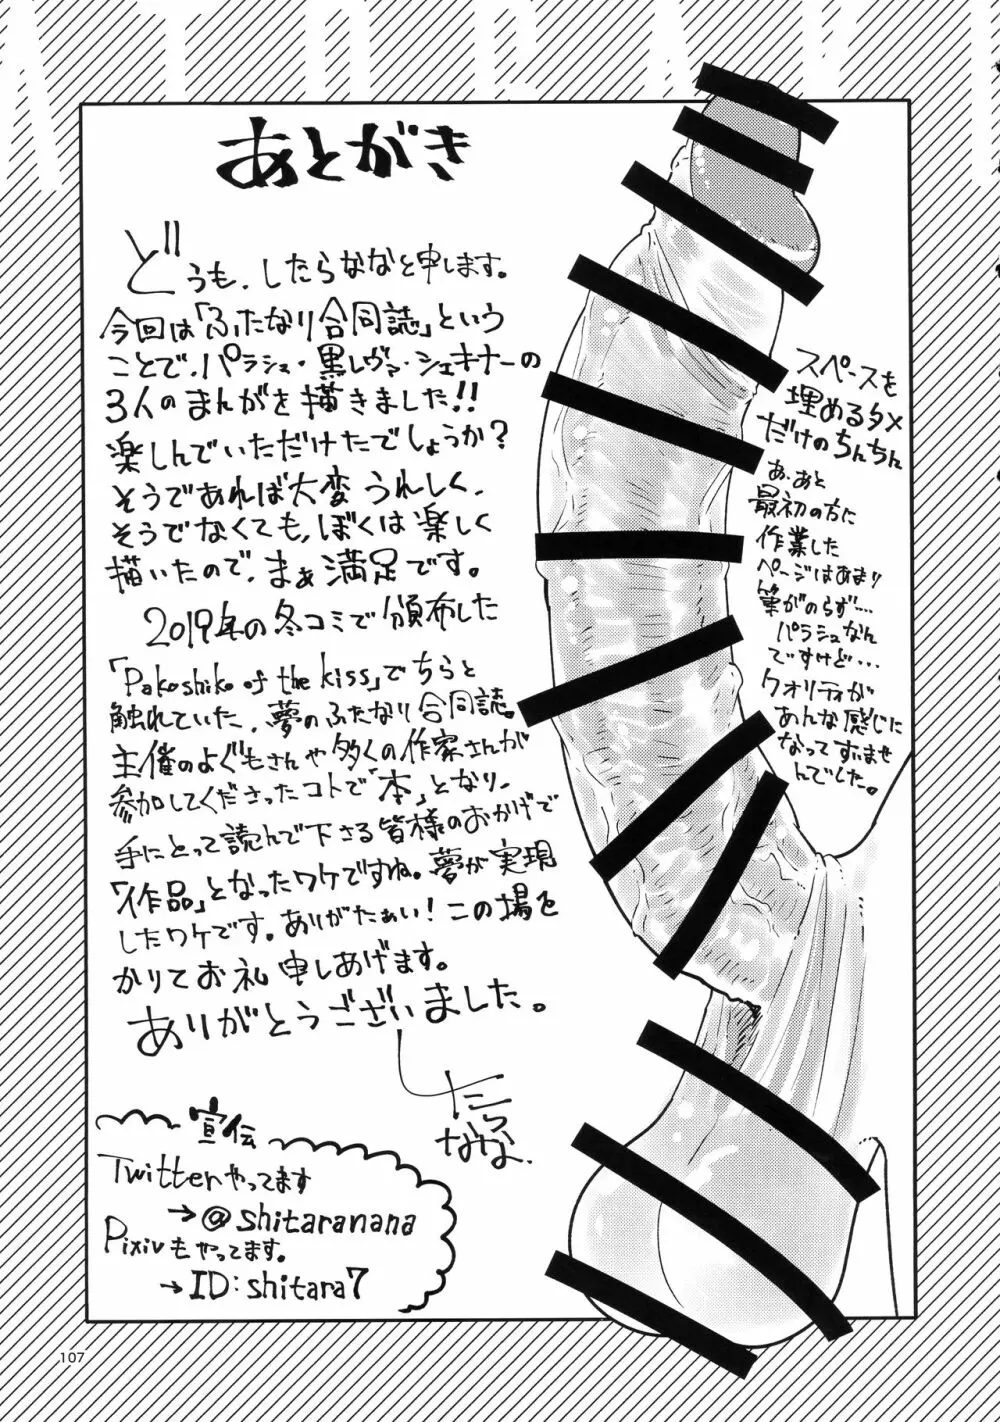 あとがき
どうも、したらななと申します。
今回は「ふたなり合同誌」という
ことで、パラシュ・黒レヴァ・シェキナーの
3人のまんがを描きました!!
楽しんでいただけたでしょうか?
そうであれば大変うれしく、
そうでなくても、ぼくは楽しく
描いたので、まぁ満足です。
2019年の冬コミで頒布した
「Pakoshiko of the kiss」でちらと
触れていた、夢のふたなり合同誌。
主催のよぐもさんや多くの作家さんが
参加してくださったコトで「本」となり、
手にとって読んで下さる皆様のおかげで
「作品」となったワケですね。夢が実現
したワケです。ありがたぁい!この場を
かりてお礼申しあげます。
ありがとうございました。
したらなな.
スペースを
埋めるタメ
だけのちんちん
あ、あと
最初の方に
作業した
ページはあまり
筆がのらず…
パラシュなん
ですけど…
クオリティが
あんな感じに
なってすいませ
んでした。
宣伝
Twitterやってます
→@shitaranana
Pixivもやってます。
→ID:shitara7
107